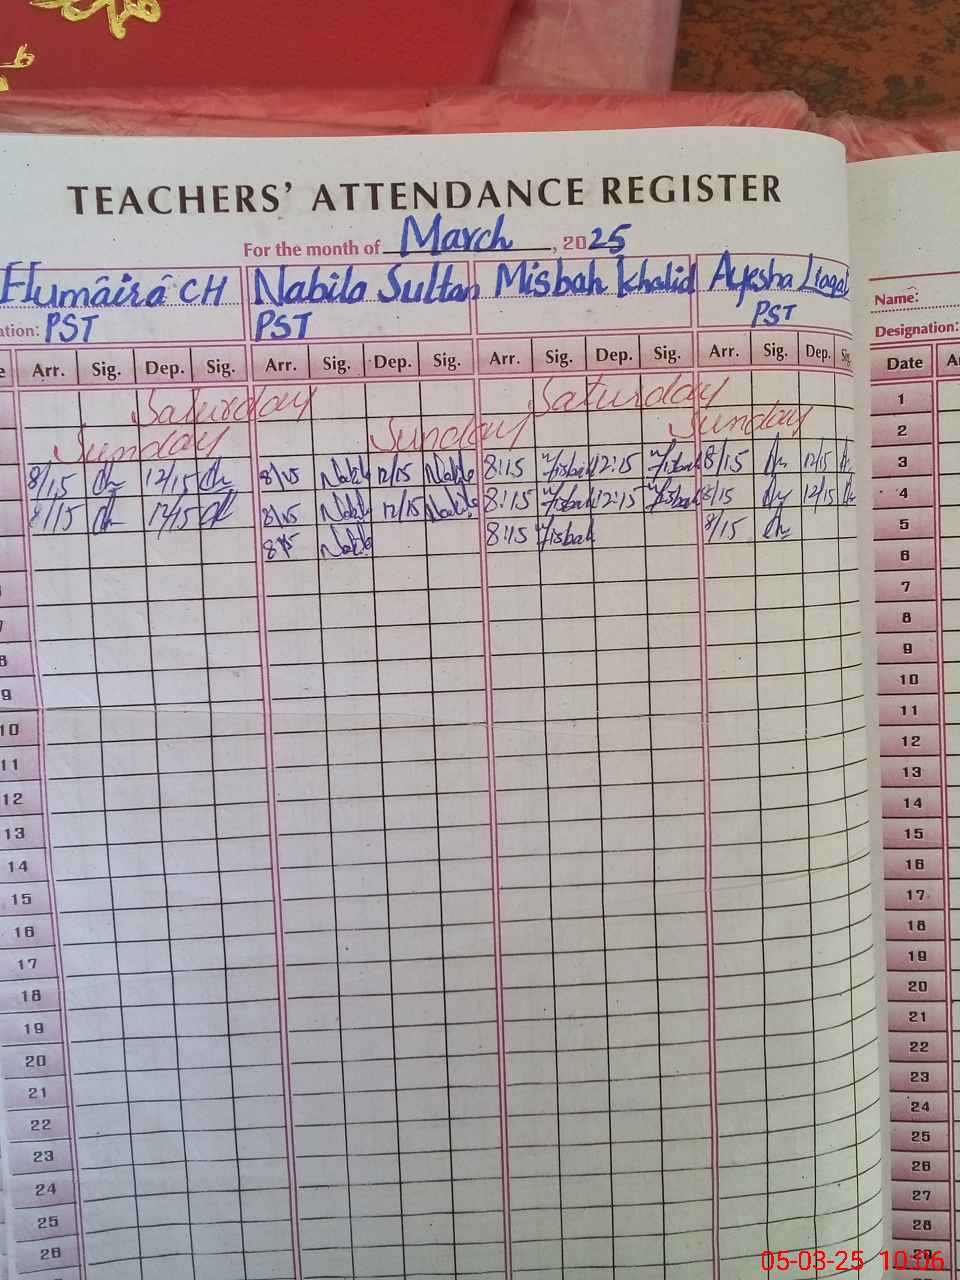 TEACHERS' ATTENDANCE REGISTER
For the month of March, 2025
Humâirâ CH Nabila Sultan Misbah Khalid Ayesha Liaqat
ation: PST PST PST
Name:
Designation:
e Arr. Sig. Dep. Sig. Arr. Sig. Dep. Sig. Arr. Sig. Dep. Sig. Arr. Sig. Dep. Sig.
Date
Saturday Saturday
Sunday Sunday Sunday
8/15 12/15 8/15 Nabila 12/15 Nabila 8:15 Misbah 12:15 Misbah 8/15 12/15
8/15 12/15 8/15 Nabila 12/15 Nabila 8:15 Misbah 12:15 Misbah 8/15 12/15
8/15 Nabila 8:15 Misbah 8/15
8
9
10
11
12
13
14
15
16
17
18
19
20
21
22
23
24
25
26
1
2
3
4
5
6
7
8
9
10
11
12
13
14
15
16
17
18
19
20
21
22
23
24
25
26
27
28
29
05-03-25 10:06